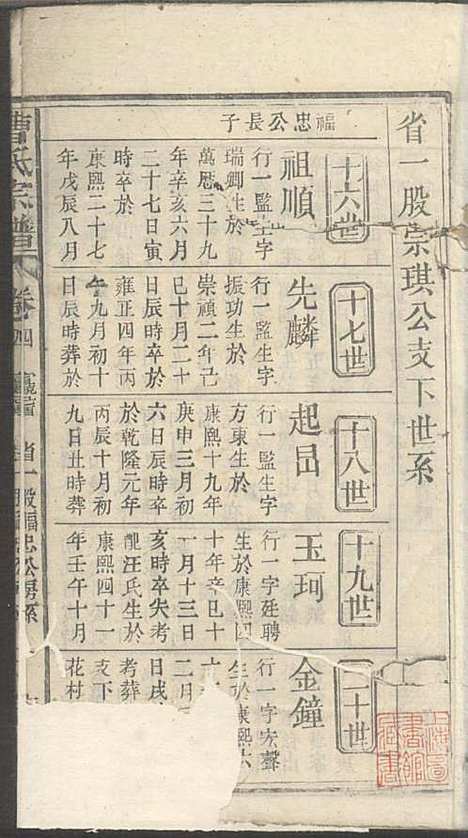 省一股崇琪公支下世系
十六世
福忠公長子
祖順
行一監生字
瑞卿生於
萬曆三十九
年辛亥六月
二十七日寅
時卒於
康熙二十七
年戊辰八月
十七世
先麟
行一監生字
振功生於
崇禎二年己
巳十月二十
日辰時卒於
雍正四年丙
午九月初十
日辰時葬於
十八世
起喦
行一監生字
方東生於
康熙十九年
庚申三月初
六日辰時卒
於乾隆元年
丙辰十月初
九日丑時葬
十九世
玉珂
行一字廷聘
生於康熙四
十年辛巳十
一月十三日
亥時卒失考
配汪氏生於
康熙四十一
年壬午十月
二十世
金鐘
行一字宏聲
生於康熙六
二月
日戌
考葬
支下
花村
曹氏宗譜
卷四
省一股福忠公房系
上海圖書館藏書